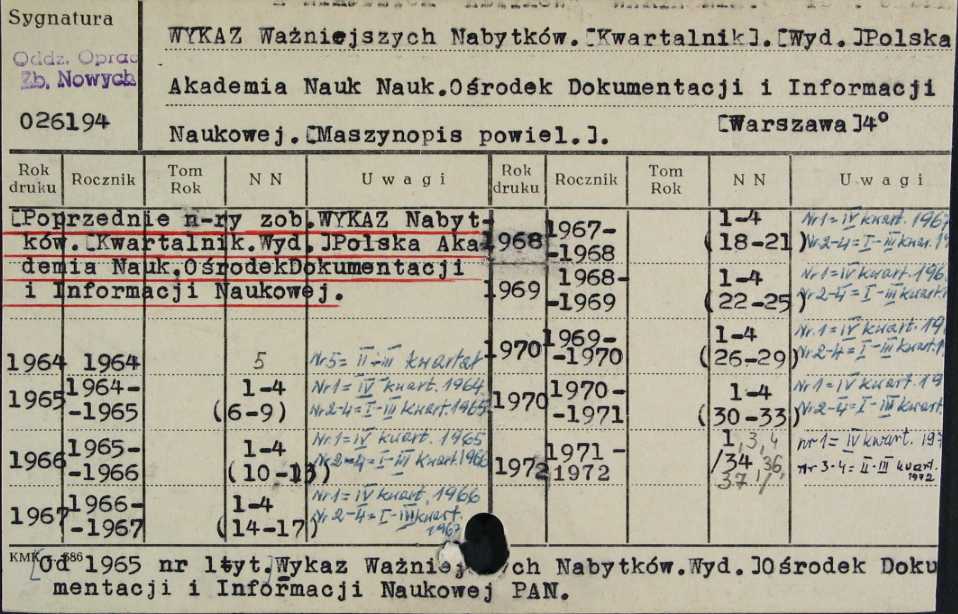 Sygnatura
Oddz. Oprac
Zb. Nowych
026194
WYKAZ Ważniejszych Nabytków.[Kwartalnik].[Wyd.]Polska
Akademia Nauk Nauk.Ośrodek Dokumentacji i Informacji
Naukowej.[Maszynopis powiel.]. [Warszawa]4°
Rok druku Rocznik Tom Rok NN Uwagi Rok druku Rocznik Tom Rok NN Uwagi
[Poprzednie n-ry zob.WYKAZ Nabyt-
ków.[Kwartalnik.Wyd.]Polska Aka
demia Nauk.OśrodekDokumentacji
i Informacji Naukowej.
1964 1964 5 Nr5= II-III kwartał
1965 1964-
-1965 1-4
(6-9) Nr1= IV kwart. 1964
Nr2-4= I-III kwart.1965
1966 1965-
-1966 1-4
(10-13) Nr1= IV kwart. 1965
Nr2-4= I-III kwart.1966
1967 1966-
-1967 1-4
(14-17) Nr1= IV kwart. 1966
Nr2-4= I-III kwart.
1967
1968 1967-
-1968 1-4
(18-21) Nr1= IV kwart. 1967
Nr2-4= I-III kwar.
1969 1968-
-1969 1-4
(22-25) Nr1= IV kwart. 196
Nr2-4= I-III kwart.
1970 1969-
-1970 1-4
(26-29) Nr.1= IV kwart. 19
Nr2-4= I-III kwart.
1970 1970-
-1971 1-4
(30-33) Nr1= IV kwart. 19
Nr2-4= I-III kwart.
1972 1971-
-1972 1,3,4
/34, 36,
37/ nr1= IV kwart. 197
Nr 3-4= II-III kwart.
1972
[Od 1965 nr 1tyt.]Wykaz Ważniej ch Nabytków.Wyd.]Ośrodek Doku
mentacji i Informacji Naukowej PAN.